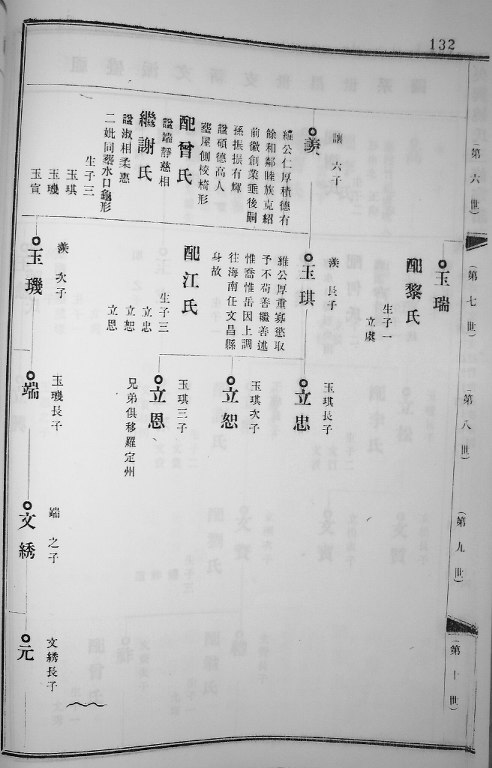 132
第六世
第七世
第八世
第九世
第十世
讓 六子
羨
維公仁厚積德有
餘和鄰睦族克紹
前徽創業垂後嗣
孫振振有輝
諡碩德高人
塟屋側棱椅形
配曾氏
諡端靜慈相
繼謝氏
諡淑相柔惠
二妣同塟水口龜形
生子三
玉琪
玉璣
玉寊
玉瑞
配黎氏
生子一
立虞
羨 長子
玉琪
維公厚重寡慾取
予不苟善繼善述
惟喬惟岳因上調
往海南任文昌縣
身故
配江氏
生子三
立忠
立恕
立恩
羨 次子
玉璣
玉琪長子
立忠
玉琪次子
立恕
玉琪三子
立恩
兄弟俱移羅定州
玉璣長子
端
端 之子
文綉
文綉長子
元